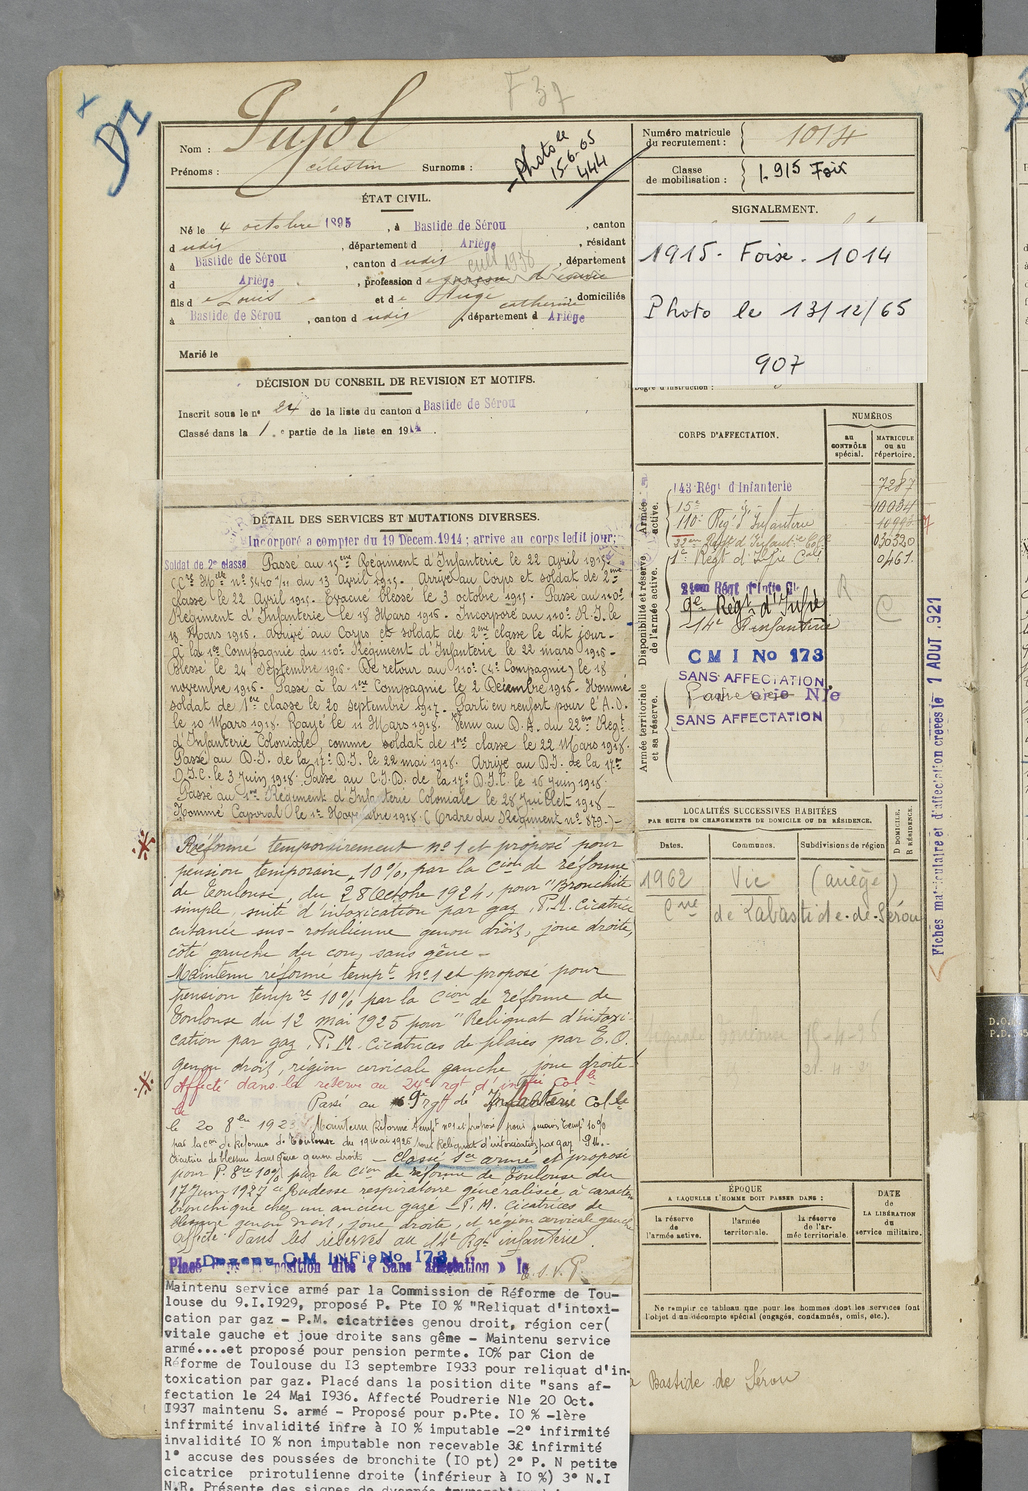 F 37
DI
Nom : Pujol
Prénoms : Célestin Surnoms :
Photo le
15-6-65
444
ÉTAT CIVIL.
Né le 4 octobre 1895, à Bastide de Sérou, canton
d udis, département d Ariège, résidant
à Bastide de Sérou, canton d udis, département
d Ariège, profession d e garçon d'écurie
cult 1936
fils d e Louis et d e Augé catherine, domiciliés
à Bastide de Sérou, canton d udis, département d Ariège
Marié le
DÉCISION DU CONSEIL DE REVISION ET MOTIFS.
Inscrit sous le n° 24 de la liste du canton d Bastide de Sérou
Classé dans la 1re partie de la liste en 1914.
DÉTAIL DES SERVICES ET MUTATIONS DIVERSES.
Incorporé a compter du 19 Décem.1914 ; arrivé au corps ledit jour;
Soldat de 2e classe Passé au 15eme Régiment d'Infanterie le 22 Avril 1915
du 13 avril 1915. Arrivé au Corps et soldat de 2me
classe le 22 Avril 1915. Evacué blessé le 3 octobre 1915. Passé au 110e
Régiment d'Infanterie le 18 Mars 1916. Incorporé au 110e R.I. le
18 Mars 1916. Arrivé au Corps et soldat de 2me classe le dit jour.
à la 1re Compagnie du 110e Régiment d'Infanterie le 22 mars 1916.
Blessé le 24 Septembre 1916. De retour au 110e (4e Compagnie) le 18
novembre 1916. Passé à la 1re Compagnie le 2 Décembre 1916. Nommé
soldat de 1re classe le 20 septembre 1917. Parti en renfort pour l'A.D.
le 10 Mars 1918. Rayé le 11 Mars 1918. Venu au D.A. du 22me Régt
d'Infanterie Coloniale, comme soldat de 1re classe le 22 Mars 1918.
Passé au D.I. de la 17e D.I. le 22 mai 1918. Arrivé au D.I. de la 17me
D.I.C. le 3 Juin 1918. Passé au C.I.D. de la 17e D.I.C. le 16 Juin 1918.
Passé au 1er Régiment d'Infanterie Coloniale le 28 Juillet 1918
Nommé Caporal le 1er Novembre 1918. (Ordre du Régiment n° 879.)
Réformé temporairement n° 1 et proposé pour
pension temporaire, 10%, par la Cion de réforme
de Toulouse, du 28 Octobre 1924, pour "Bronchite
simple suite d'intoxication par gaz, P.M. Cicatrice
cutanée sus-rotulienne genou droit, joue droite,
côté gauche du cou, sans gêne.
Maintenu réformé tempt n° 1 et proposé pour
pension tempre 10% par la Cion de réforme de
Toulouse du 12 mai 1925 pour "Reliquat d'intoxi-
cation par gaz, P.M. Cicatrices de plaies par E.O.
genou droit, région cervicale gauche, joue droite
Affecté dans la réserve au 24e rgt d'infrie Colle
Passé au 9e rgt de Infanterie Colle
le 20 8bre 192 Maintenu Réformé tempt n°1 et proposé pour pension tempre 10%
par la Cion de Réforme de Toulouse du mai 1926 pour Reliquat d'intoxication par gaz. P.M.
Cicatrice de blessure sans gêne genou droit – Classé Sce armé et proposé
pour P. 10% par la Cion de réforme de Toulouse du
17 Juin 1927 Rudesse respiratoire généralisée à caractère
bronchique chez un ancien gazé – P.M. Cicatrices de
blessure genou droit, joue droite, et région cervicale gauche
Affecté dans les réserves au 14e Rgt infanterie.
Devenu C M INFie No 173
Placé dans la position dite « Sans affectation » le
T. S. V. P.
Maintenu service armé par la Commission de Réforme de Tou-
louse du 9.I.I929, proposé P. Pte IO % "Reliquat d'intoxi-
cation par gaz – P.M. cicatrices genou droit, région cer(
vitale gauche et joue droite sans gêne – Maintenu service
armé....et proposé pour pension permte. IO% par Cion de
Réforme de Toulouse du I3 septembre I933 pour reliquat d'in-
toxication par gaz. Placé dans la position dite "sans af-
fectation le 24 Mai I936. Affecté Poudrerie Nle 20 Oct.
I937 maintenu S. armé – Proposé pour p.Pte. IO % –lère
infirmité invalidité infre à IO % imputable –2° infirmité
invalidité IO % non imputable non recevable 3£ infirmité
1° accuse des poussées de bronchite (IO pt) 2° P. N petite
cicatrice prirotulienne droite (inférieur à IO %) 3° N.I
N.R. Présente des signes de
Numéro matricule
du recrutement : 1014
Classe
de mobilisation : 1.915 Foix
SIGNALEMENT.
1915. Foix. 1014
Photo le 13/12/65
907
Degré d'instruction :
CORPS D'AFFECTATION.
NUMÉROS
au
CONTRÔLE
spécial.
MATRICULE
ou au
répertoire.
Armée
active.
143 Régt d'Infanterie 7287
15e 10004
110e Rég d'Infanterie
22me Régt d'Infantie Cole 030320
1er Régt d'Infie Cole 0461
Disponibilité et réserve
de l'armée active.
24em Régt d'Infie Cle
9e Régt d'Infie
14e Rt infanterie
R
C
C M I No 173
SANS AFFECTATION
Poudrerie Nle
SANS AFFECTATION
Armée territoriale
et sa réserve.
Fiches matriculaire et d'affectation créées le 1 AOUT .921
LOCALITÉS SUCCESSIVES HABITÉES
PAR SUITE DE CHANGEMENTS DE DOMICILE OU DE RÉSIDENCE.
D DOMICILE.
R RÉSIDENCE.
Dates. Communes. Subdivisions de région
1962 Vic (ariège)
Cne de Labastide-de-Sérou
ÉPOQUE
A LAQUELLE L'HOMME DOIT PASSER DANS :
la réserve
de l'armée active.
l'armée
territoriale.
la réserve
de l'ar-
mée territoriale.
DATE
de
LA LIBÉRATION
du
service militaire.
Ne remplir ce tableau que pour les hommes dont les services font
l'objet d'un décompte spécial (engagés, condamnés, omis, etc.).
Bastide de Sérou